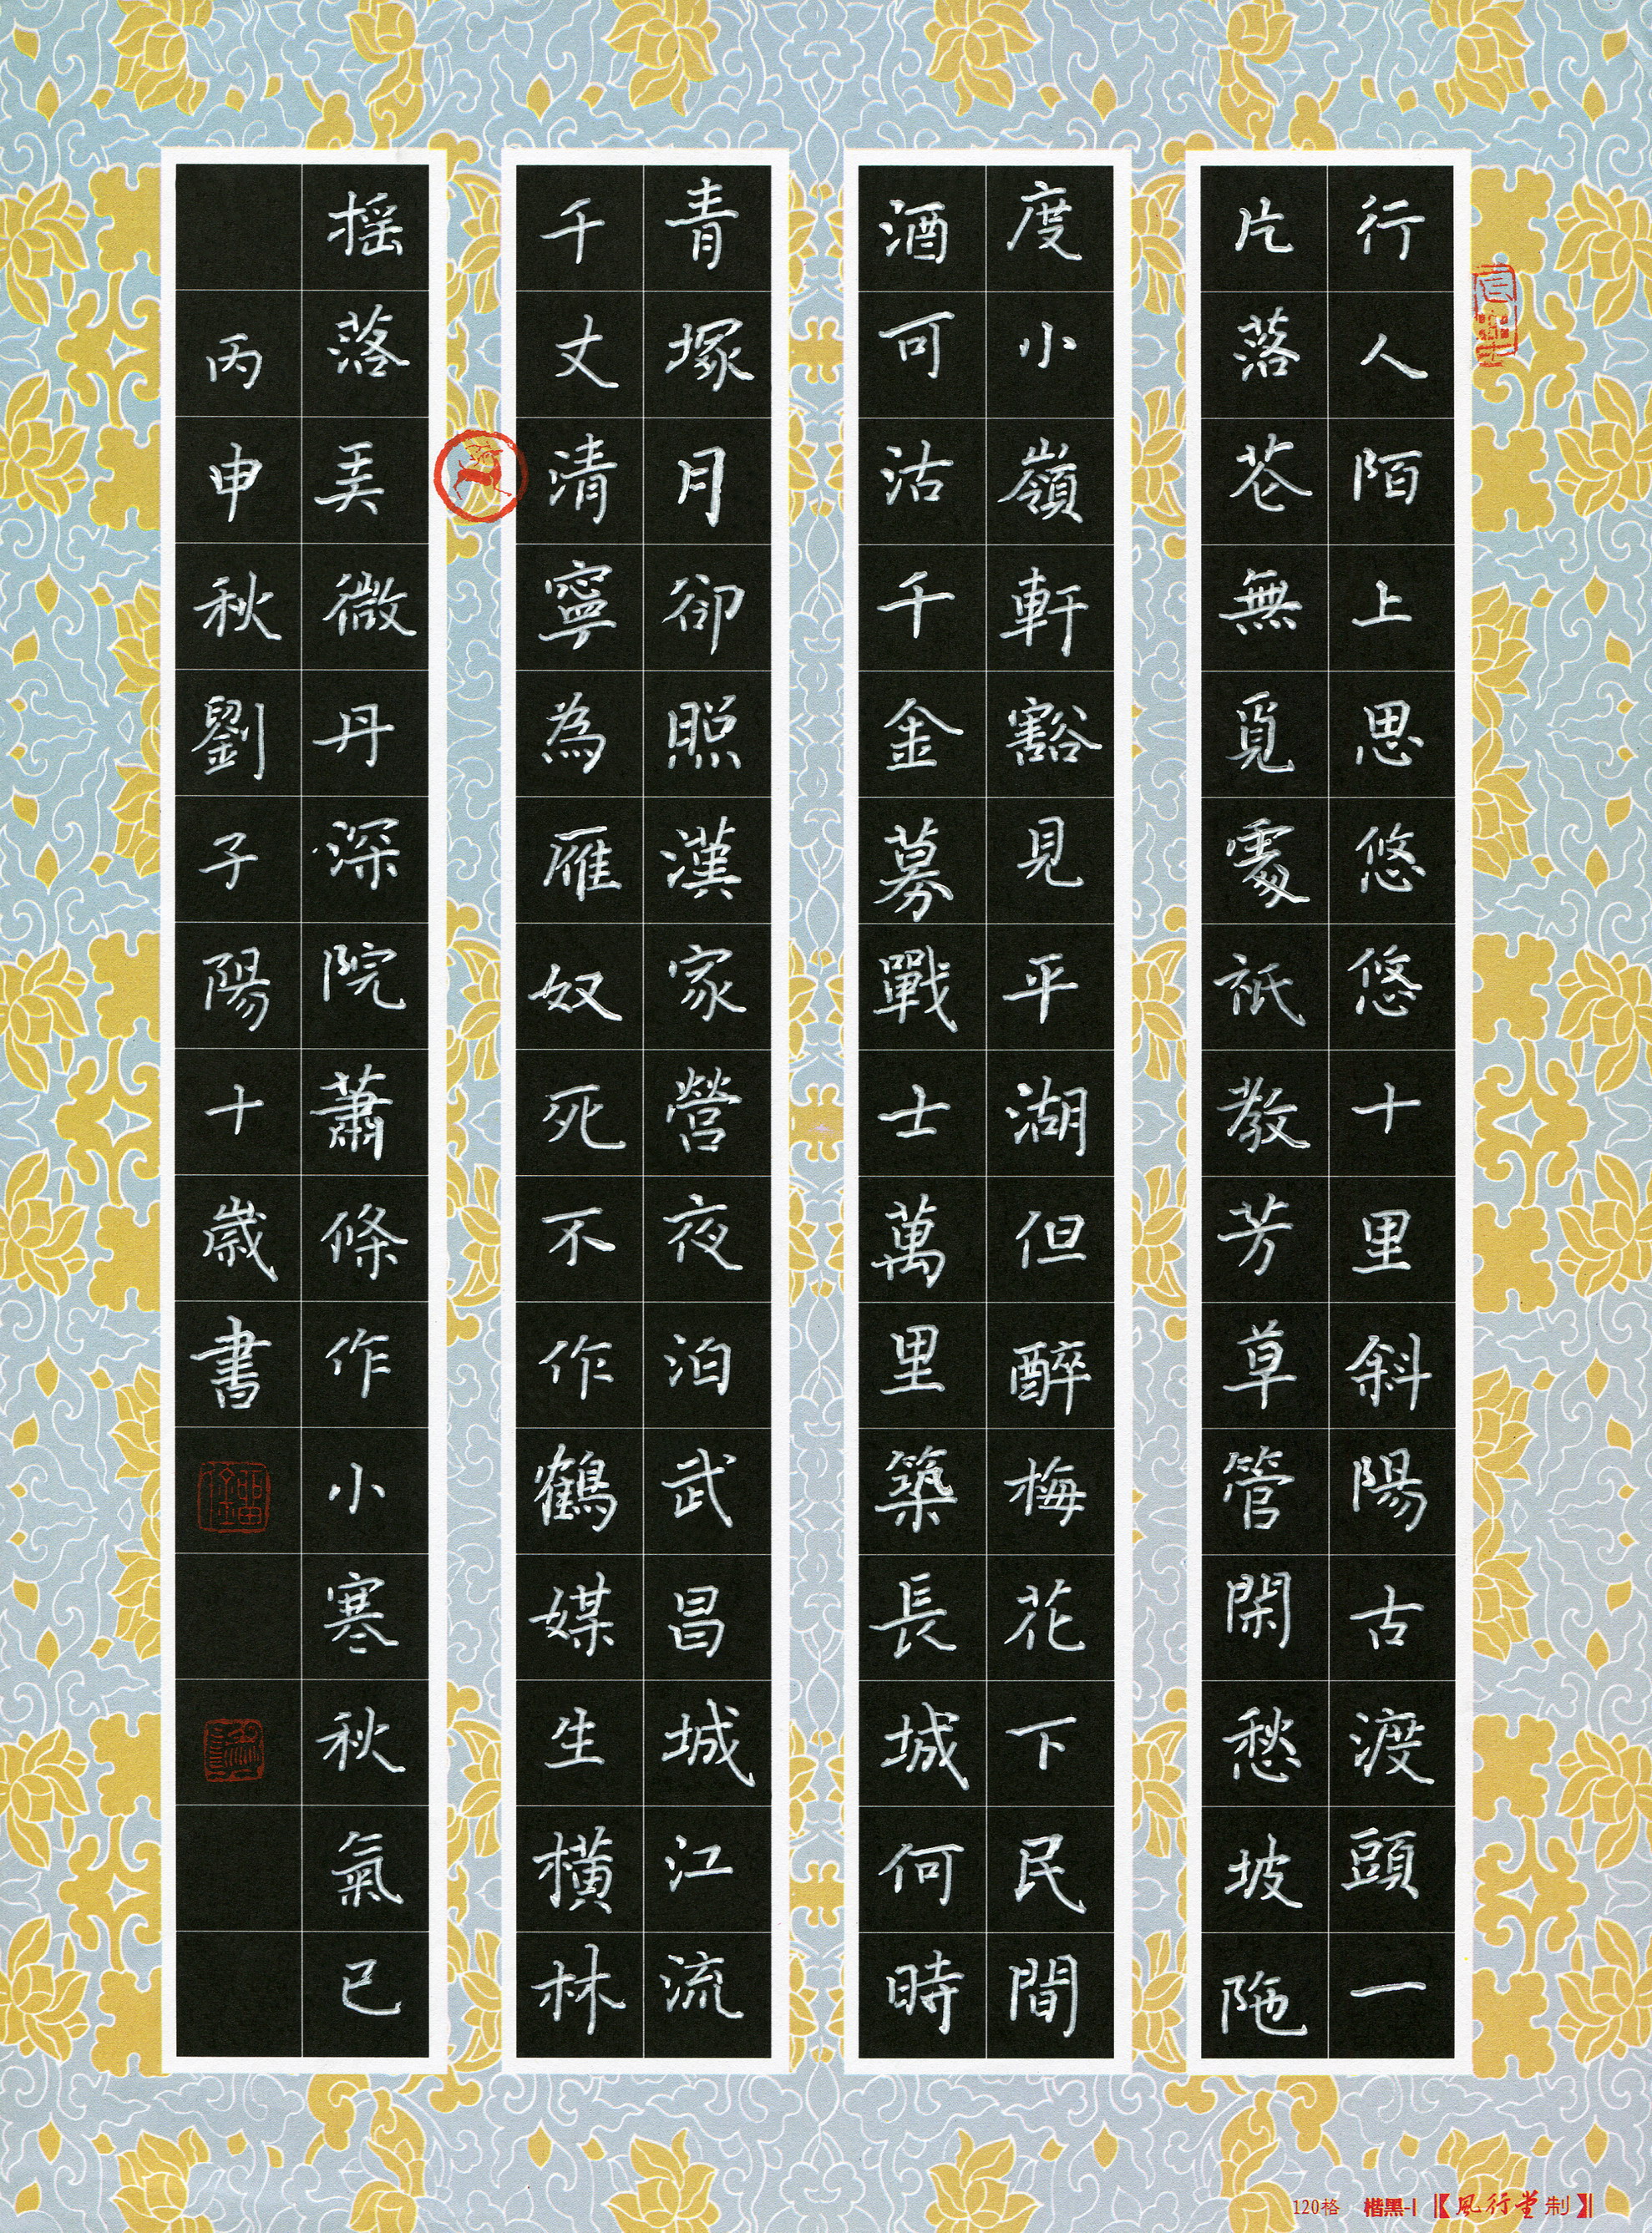 行人陌上思悠悠十里斜陽古渡頭一
片落芲無覓處祇教芳草管閑愁坡陁
度小嶺軒豁見平湖但醉梅花下民間
酒可沽千金募戰士萬里築長城何時
青塚月卻照漢家營夜泊武昌城江流
千丈清寧為雁奴死不作鶴媒生橫林
搖落弄微丹深院蕭條作小寒秋氣已
丙申秋劉子陽十歲書
120格 楷黑-1【風行堂制】